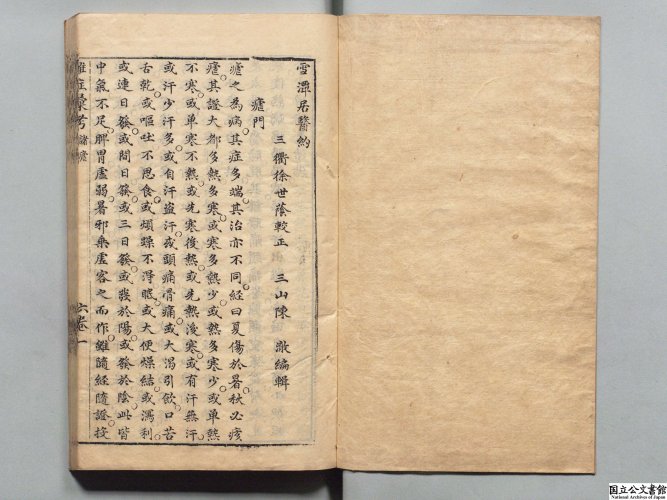 雪潭居醫約
三衢徐世蔭較正 三山陳 澈編輯
瘧門
瘧之為病其症多端其治亦不同經曰夏傷於暑秋必痎
瘧其證大都多熱多寒或寒多熱少或熱多寒少或單熱
不寒或單寒不熱或先寒後熱或先熱後寒或有汗無汗
或汗少汗多或自汗盜汗或頭痛骨痛或大渴引飲口苦
舌乾或嘔吐不思食或煩躁不得眠或大便燥結或瀉利
或連日發或間日發或三日發或發於陽或發於陰此皆
中氣不足脾胃虛弱暑邪乘虛客之而作雖隨經隨證投
雜症彙考 諸瘧 六卷 一
国立公文書館
National Archives of Japan